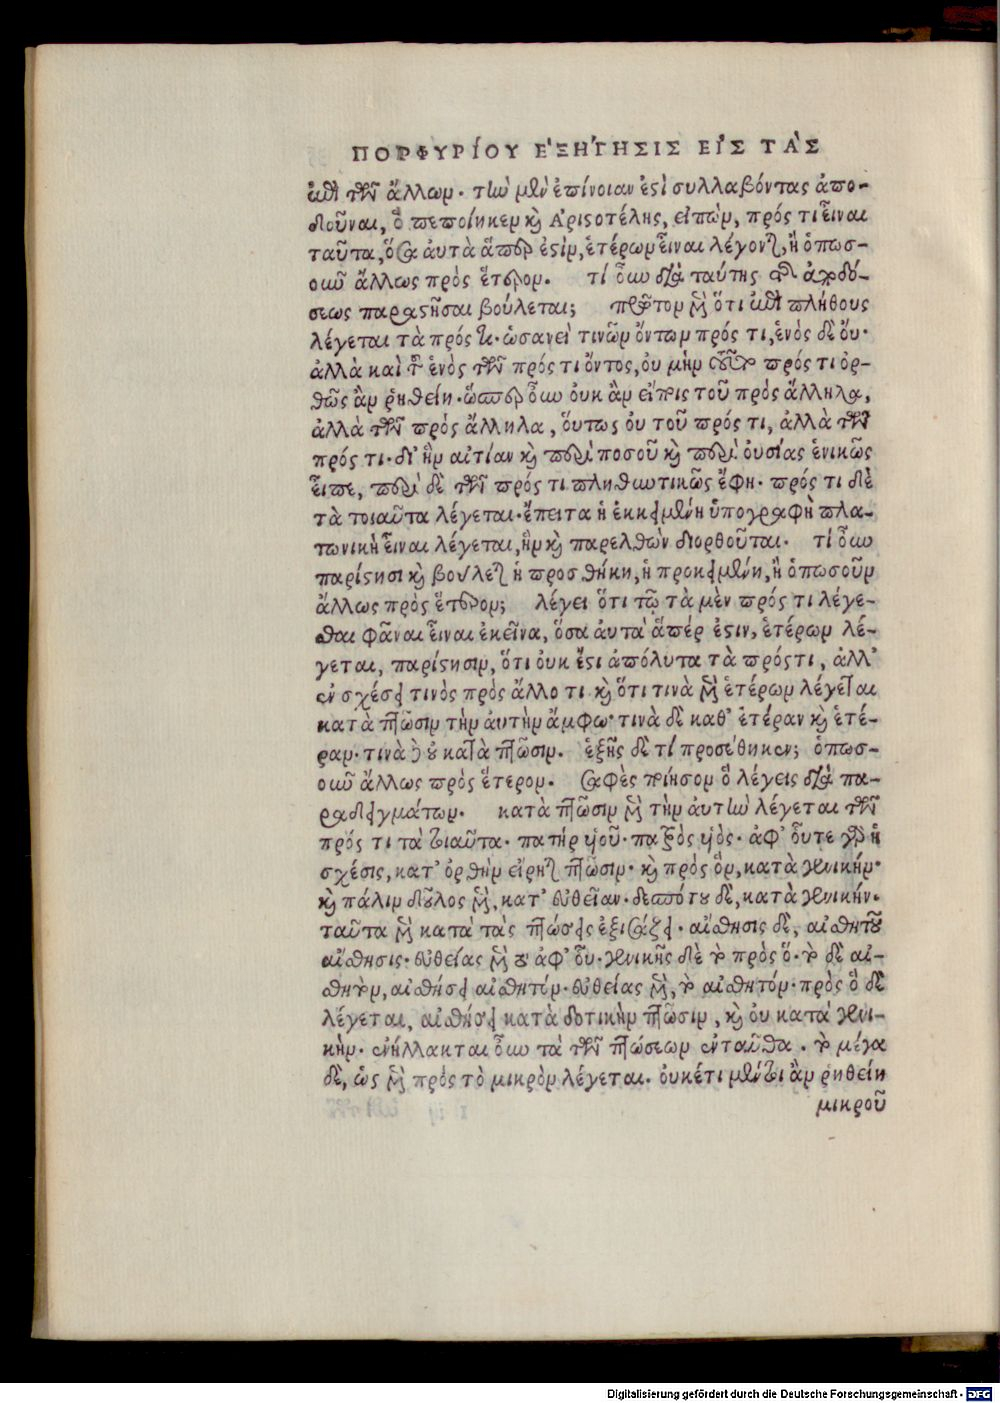 ΠΟΡΦΥΡΊΟΥ ἘΞΗΓΗΣΙΣ ΕἸΣ ΤᾺΣ
ἐπὶ τῶν ἄλλων. τὴν μὲν ἐπίνοιαν ἐστὶ συλλαβόντας ἀπο-
δοῦναι, ὃ πεποίηκεν καὶ Ἀριστοτέλης, εἰπὼν, πρός τι εἶναι
ταῦτα, ὅσα ἀυτὰ ἅπερ ἐστὶν, ἑτέρων εἶναι λέγονται, ἢ ὁπωσ-
οῦν ἄλλως πρὸς ἕτερον. τί οὖν διὰ ταύτης τῆς ἀποδό-
σεως παραστῆσαι βούλεται; πρῶτον μὲν ὅτι ἐπὶ πλήθους
λέγεται τὰ πρός τι. ὡσανεὶ τινῶν ὄντων πρός τι, ἑνὸς δὲ ὄυ.
ἀλλὰ καὶ τοῦ ἑνὸς τῶν πρός τι ὄντος, ὀυ μὴν τοῦτο πρός τι ὀρ-
θῶς ἂν ῥηθείη. ὥσπερ οὖν ουκ ἂν είποις τοῦ πρὸς ἄλληλα,
ἀλλὰ τῶν πρὸς ἄλληλα, ὅυτως ὀυ τοῦ πρός τι, ἀλλὰ τῶν
πρός τι. δι' ἣν αἰτίαν καὶ περὶ ποσοῦ καὶ περὶ ὀυσίας ἑνικῶς
εἶπε, περὶ δὲ τῶν πρός τι πληθυντικῶς ἔφη. πρός τι δὲ
τὰ τοιαῦτα λέγεται. ἔπειτα ἡ ἐκκειμένη ὑπογραφὴ πλα-
τωνικὴ εἶναι λέγεται, ἣν καὶ παρελθὼν διορθοῦται. τί οὖν
παρίστησι καὶ βούλεται ἡ προσθήκη, ἡ προκειμένη, ἢ ὁπωσοῦν
ἄλλως πρὸς ἕτερον; λέγει ὅτι τῷ τὰ μὲν πρός τι λέγε-
σθαι φᾶναι εἶναι ἐκεῖνα, ὅσα ἀυτὰ ἅπέρ ἐστιν, ἑτέρων λέ-
γεται, παρίστησιν, ὅτι ὀυκ ἔστι ἀπόλυτα τὰ πρός τι, ἀλλ'
ἐν σχέσει τινὸς πρὸς ἄλλο τι καὶ ὅτι τινὰ μὲν ἑτέρων λέγεται
κατὰ πτῶσιν τὴν ἀυτὴν ἄμφω. τινὰ δὲ καθ' ἑτέραν καὶ ἑτέ-
ραν. τινὰ δὲ ὀυ κατὰ πτῶσιν. ἑξῆς δὲ τί προσέθηκεν; ὁπωσ-
οῦν ἄλλως πρὸς ἕτερον. σαφὲς ποίησον ὃ λέγεις διὰ πα-
ραδειγμάτων. κατὰ πτῶσιν μὲν τὴν ἀυτὴν λέγεται τῶν
πρός τι τὰ τοιαῦτα. πατὴρ ὑιοῦ. πατρὸς ὑιός. ἀφ' οὗτε γὰρ ἡ
σχέσις, κατ' ὀρθὴν εἴρηται πτῶσιν. καὶ πρὸς ὃν, κατὰ γενικήν.
καὶ πάλιν δοῦλος μὲν, κατ' ευθεῖαν. δεσπότου δὲ, κατὰ γενικήν.
ταῦτα μὲν κατὰ τὰς πτώσεις ἐξισάζει. αἴσθησις δὲ, αἰσθητοῦ
αἴσθησις. ευθείας μὲν ὀυ ἀφ' οὗ. γενικῆς δὲ τὸ πρὸς ὅ. τὸ δὲ αἰ-
σθητὸν, αἰσθήσει αἰσθητόν. ευθείας μὲν, τὸ αἰσθητόν. πρὸς ὃ δὲ
λέγεται, αἰσθήσει κατὰ δοτικὴν πτῶσιν, καὶ ὀυ κατὰ γενι-
κὴν. ἐνήλλακται οὖν τὰ τῶν πτώσεων ἐνταῦθα. τὸ μέγα
δὲ, ὡς μὲν πρὸς τὸ μικρὸν λέγεται. ὀυκέτι μέντοι ἂν ῥηθείη
μικροῦ
Digitalisierung gefördert durch die Deutsche Forschungsgemeinschaft - DFG